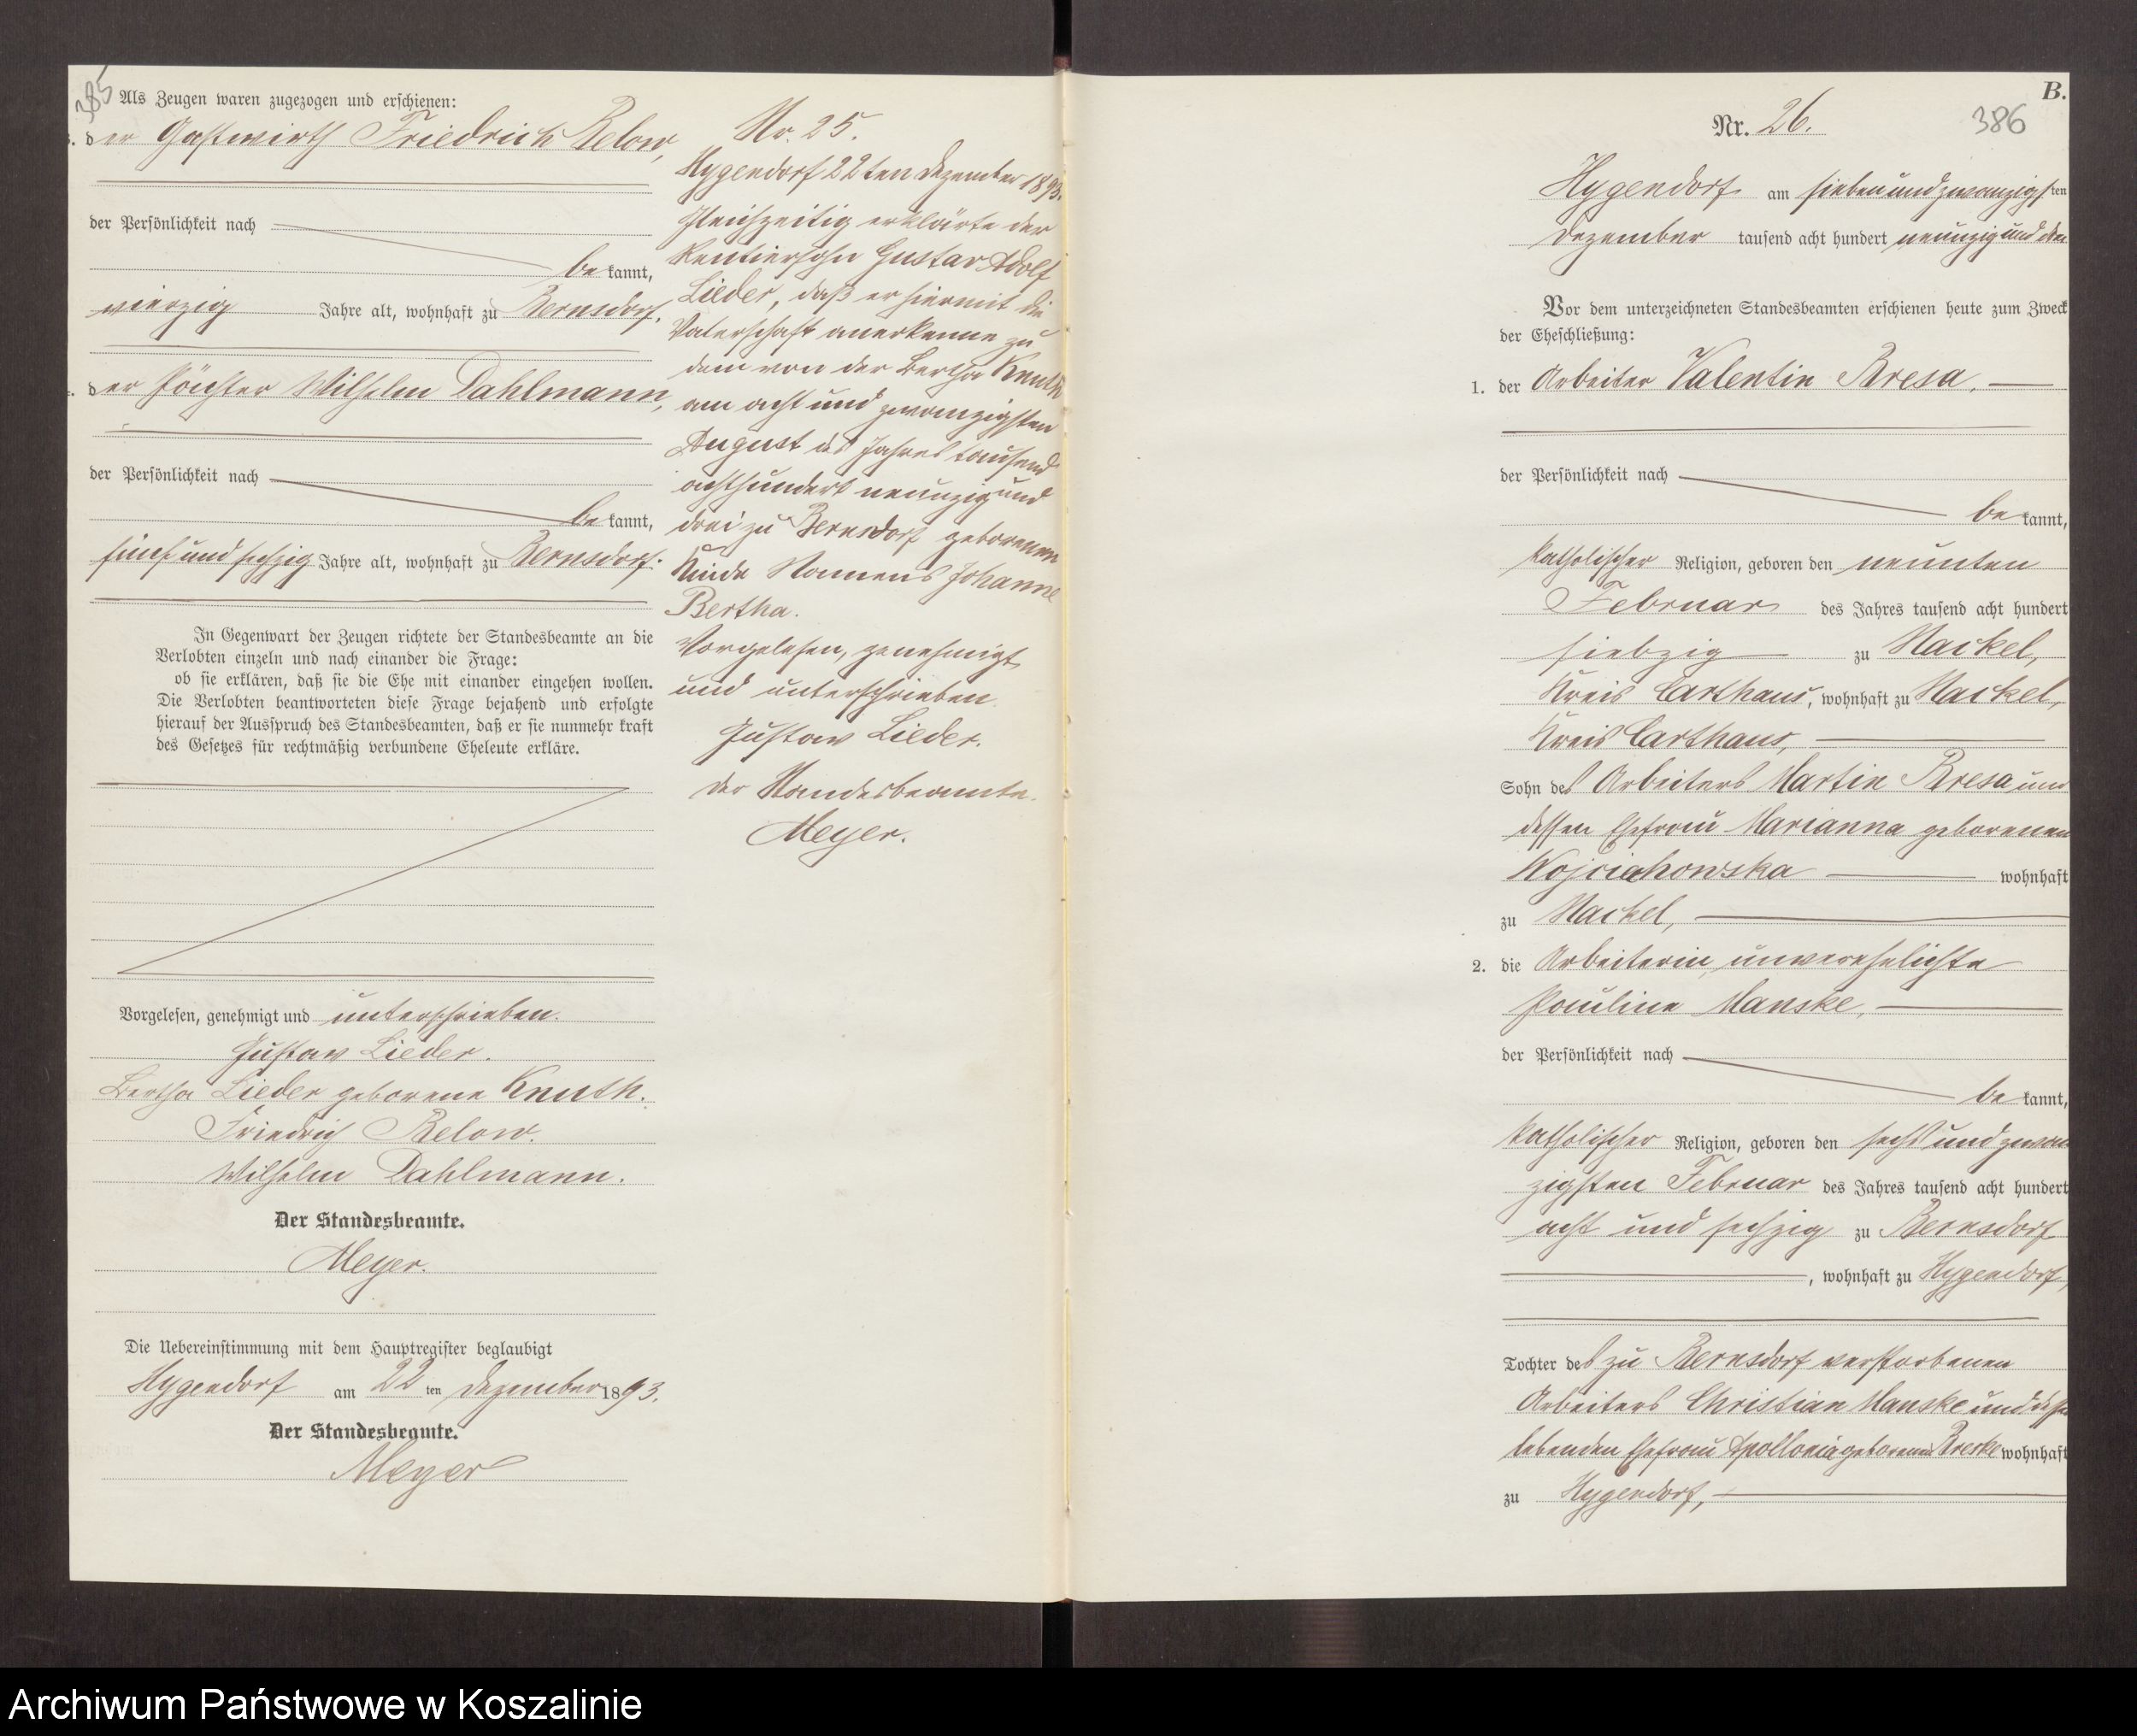 385
Als Zeugen waren zugezogen und erschienen:
3. der Gastwirth Friedrich Below,
der Persönlichkeit nach
bekannt,
vierzig Jahre alt, wohnhaft zu Bernsdorf,
4. der Pächter Wilhelm Dahlmann,
der Persönlichkeit nach
bekannt,
fünf und sechzig Jahre alt, wohnhaft zu Bernsdorf.
In Gegenwart der Zeugen richtete der Standesbeamte an die
Verlobten einzeln und nach einander die Frage:
ob sie erklären, daß sie die Ehe mit einander eingehen wollen.
Die Verlobten beantworteten diese Frage bejahend und erfolgte
hierauf der Ausspruch des Standesbeamten, daß er sie nunmehr kraft
des Gesetzes für rechtmäßig verbundene Eheleute erkläre.
Vorgelesen, genehmigt und unterschrieben.
Gustav Lieder.
Bertha Lieder geborene Knuth.
Friedrich Below.
Wilhelm Dahlmann.
Der Standesbeamte.
Meyer.
Die Uebereinstimmung mit dem Hauptregister beglaubigt
Hygendorf am 22ten Dezember 1893.
Der Standesbeamte.
Meyer
Nr. 25.
Hygendorf 22ten Dezember 1893.
Gleichzeitig erklärte der
Rentiersohn Gustav Adolf
Lieder, daß er hiermit die
Vaterschaft anerkenne zu
dem von der Bertha Knuth
am acht und zwanzigsten
August des Jahres tausend
achthundert neunzig und
drei zu Bernsdorf geborenen
Kinde Namens Johanne
Bertha.
Vorgelesen, genehmigt
und unterschrieben.
Gustav Lieder.
Der Standesbeamte.
Meyer.
B.
Nr. 26.
386
Hygendorf am sieben und zwanzigsten
Dezember tausend acht hundert neunzig und drei
Vor dem unterzeichneten Standesbeamten erschienen heute zum Zweck
der Eheschließung:
1. der Arbeiter Valentin Bresa,
der Persönlichkeit nach
bekannt,
katholischer Religion, geboren den neunten
Februar des Jahres tausend acht hundert
siebzig zu Nackel,
Kreis Carthaus, wohnhaft zu Nackel,
Kreis Carthaus,
Sohn des Arbeiters Martin Bresa und
dessen Ehefrau Marianna geborenen
Wojciechowska wohnhaft
zu Nackel,
2. die Arbeiterin, unverehelichte
Pauline Manske,
der Persönlichkeit nach
bekannt,
katholischer Religion, geboren den sechs und zwan
zigsten Februar des Jahres tausend acht hundert
acht und sechzig zu Bernsdorf
, wohnhaft zu Hygendorf,
Tochter des zu Bernsdorf verstorbenen
Arbeiters Christian Manske und dessen
lebenden Ehefrau Apollonia geborenen Breske wohnhaft
zu Hygendorf,
Archiwum Państwowe w Koszalinie